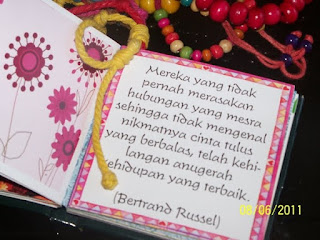 Mereka yang tidak
pernah merasakan
hubungan yang mesra
sehingga tidak mengenal
nikmatnya cinta tulus
yang berbalas, telah kehi-
langan anugerah
kehidupan yang terbaik.
(Bertrand Russel)
08/06/2011